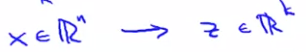 x ∈ ℝⁿ → z ∈ ℝᵏ